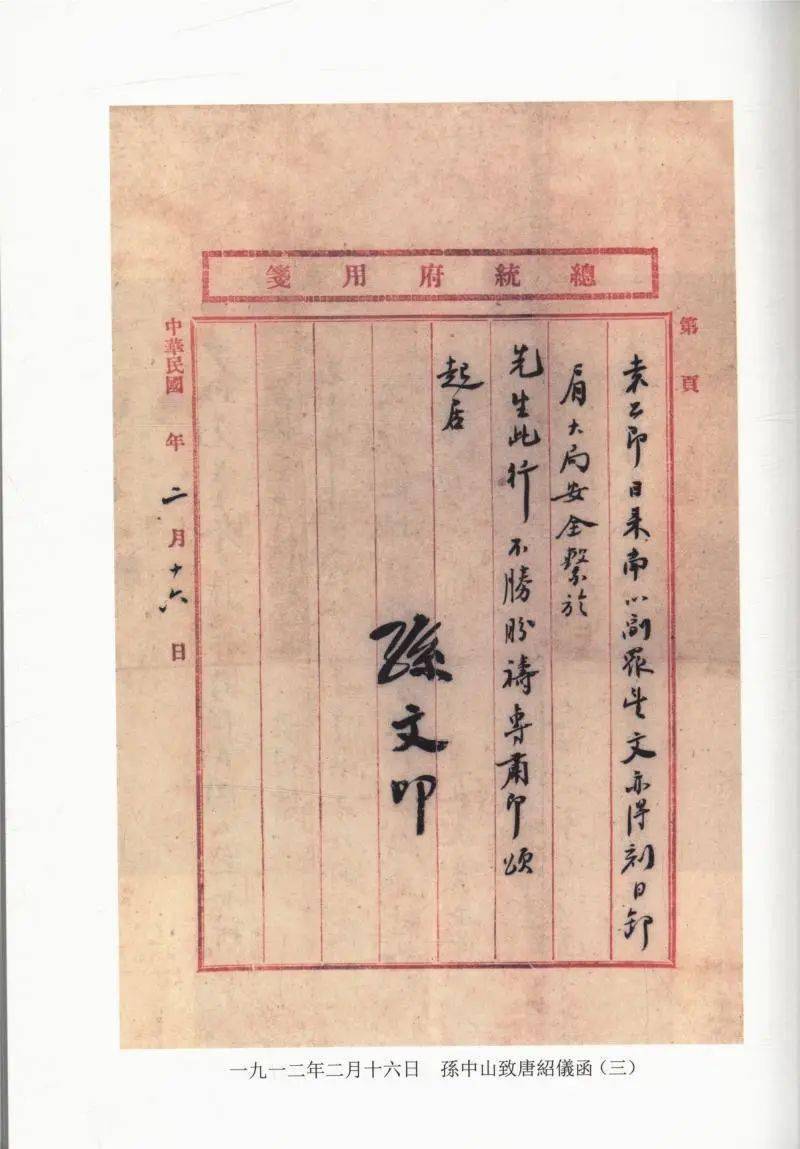 總統府用箋
第 頁
袁公即日來南以副眾望文亦得刻日卸
肩大局安全繫於
先生此行不勝盼禱專肅即頌
起居
孫文叩
中華民國 年二月十六日
一九一二年二月十六日 孫中山致唐紹儀函(三)